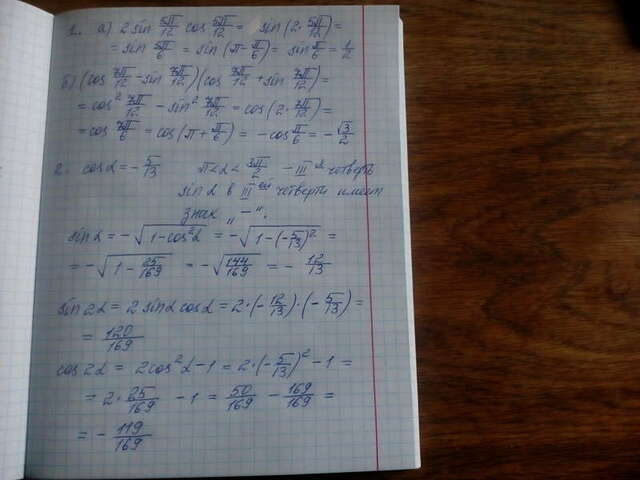 1. а) 2 sin 5π/12 cos 5π/12 = sin(2·5π/12) =
= sin 5π/6 = sin(π-π/6) = sin π/6 = 1/2
б) (cos 7π/12 - sin 7π/12)(cos 7π/12 + sin 7π/12) =
= cos² 7π/12 - sin² 7π/12 = cos(2·7π/12) =
= cos 7π/6 = cos(π+π/6) = -cos π/6 = -√3/2
2. cosα = -5/13 π<α<3π/2 - III я четверть
sin α в III ей четверти имеет
знак „-“.
sin α = -√(1-cos²α) = -√(1-(-5/13)²) =
= -√(1-25/169) = -√(144/169) = -12/13
sin 2α = 2 sinα cosα = 2·(-12/13)·(-5/13) =
= 120/169
cos 2α = 2cos²α-1 = 2·(-5/13)²-1 =
= 2·25/169 - 1 = 50/169 - 169/169 =
= -119/169